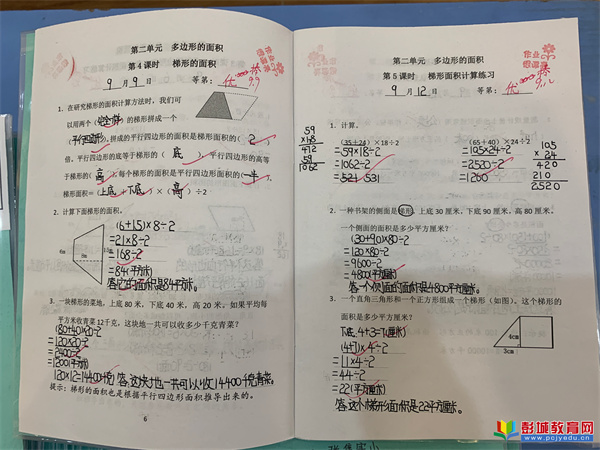 第二单元 多边形的面积
第4课时 梯形的面积
9月9日 等第: 优
9.9
1. 在研究梯形的面积计算方法时, 我们可
以用两个(完全一样)的梯形拼成一个
(平行四边形), 拼成的平行四边形的面积是梯形面积的(2)
倍。平行四边形的底等于梯形的(底), 平行四边形的高等
于梯形的(高), 每个梯形的面积是平行四边形面积的(一半)。
梯形面积=(上底+下底)×(高)÷2
2. 计算下面梯形的面积。
(6+15)×8÷2
=21×8÷2
=168÷2
=84(平方米)
答:它的面积是84平方米。
3. 一块梯形的菜地, 上底 80 米, 下底 40 米, 高 20 米。如果平均每
平方米收青菜 12千克, 这块地一共可以收多少千克青菜?
(80+40)×20÷2
=120×20÷2
=2400÷2
=1200(平方米)
120×12=14400(千克) 答:这块地一共可以收14400千克青菜。
提示: 梯形的面积也是根据平行四边形面积推导出来的。
6
第二单元 多边形的面积
第5课时 梯形面积计算练习
9月12日 等第: 优
9.12
1. 计算。
(35+24)×18÷2
=59×18÷2
=1062÷2
=521 531
59
×18
472
59
1062
(65+40)×24÷2
=105×24÷2
=2520÷2
=1260
105
× 24
420
210
2520
2. 一种书架的侧面是梯形, 上底 30 厘米, 下底 90 厘米, 高 80 厘米。
一个侧面的面积是多少平方厘米?
(30+90)×80÷2
=120×80÷2
=9600÷2
=4800(平方厘米)
答:一个侧面的面积是4800平方厘米。
3. 一个直角三角形和一个正方形组成一个梯形 (如图)。这个梯形的
面积是多少平方厘米?
下底:4+3=7(厘米)
(4+7)×4÷2
=11×4÷2
=44÷2
=22(平方厘米)
答:这个梯形面积是22平方厘米。
4cm
3cm
彭城教育网
www.pcjyedu.cn